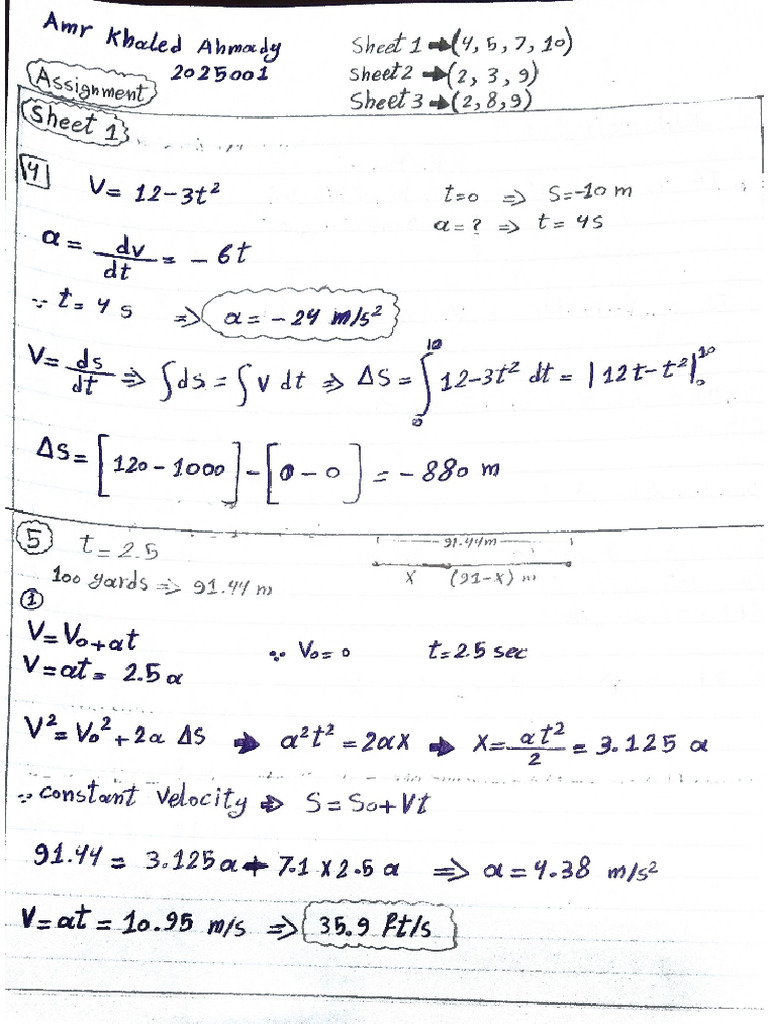 Amr Khaled Ahmady
2025001
Sheet 1 → (4, 5, 7, 10)
Sheet 2 → (2, 3, 9)
Sheet 3 → (2, 8, 9)
Assignment
Sheet 1
4
V = 12 - 3t²
t=0 ⇒ S=-10 m
a = ? ⇒ t = 4s
a = dv/dt = - 6t
∵ t = 4 s ⇒ a = - 24 m/s²
V = ds/dt ⇒ ∫ds = ∫V dt ⇒ ΔS = ∫₀¹⁰ 12-3t² dt = |12t - t³|₀¹⁰
ΔS = [120 - 1000] - [0 - 0] = - 880 m
5
t = 2.5
100 yards ⇒ 91.44 m
91.44m
X (91-X) m
1
V = V₀ + at
∵ V₀ = 0 t = 2.5 sec
V = at = 2.5 a
V² = V₀² + 2a ΔS → a²t² = 2aX → X = at²/2 = 3.125 a
∵ constant Velocity ⇒ S = S₀ + Vt
91.44 = 3.125a + 7.1 X 2.5 a ⇒ a = 4.38 m/s²
V = at = 10.95 m/s ⇒ 35.9 ft/s